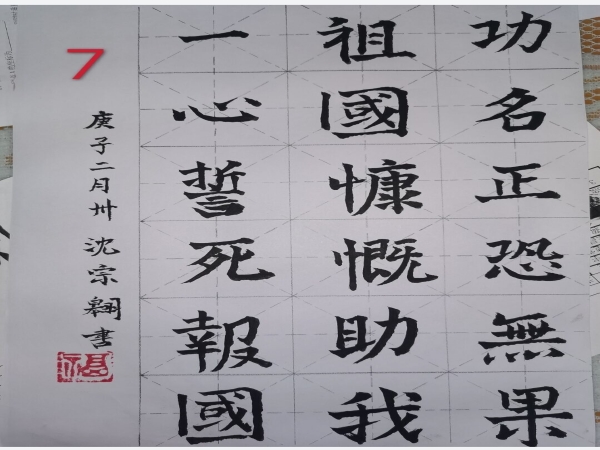 功名正恐無果
祖國慷慨助我
一心誓死報國
庚子二月卅沈宗翱書
7